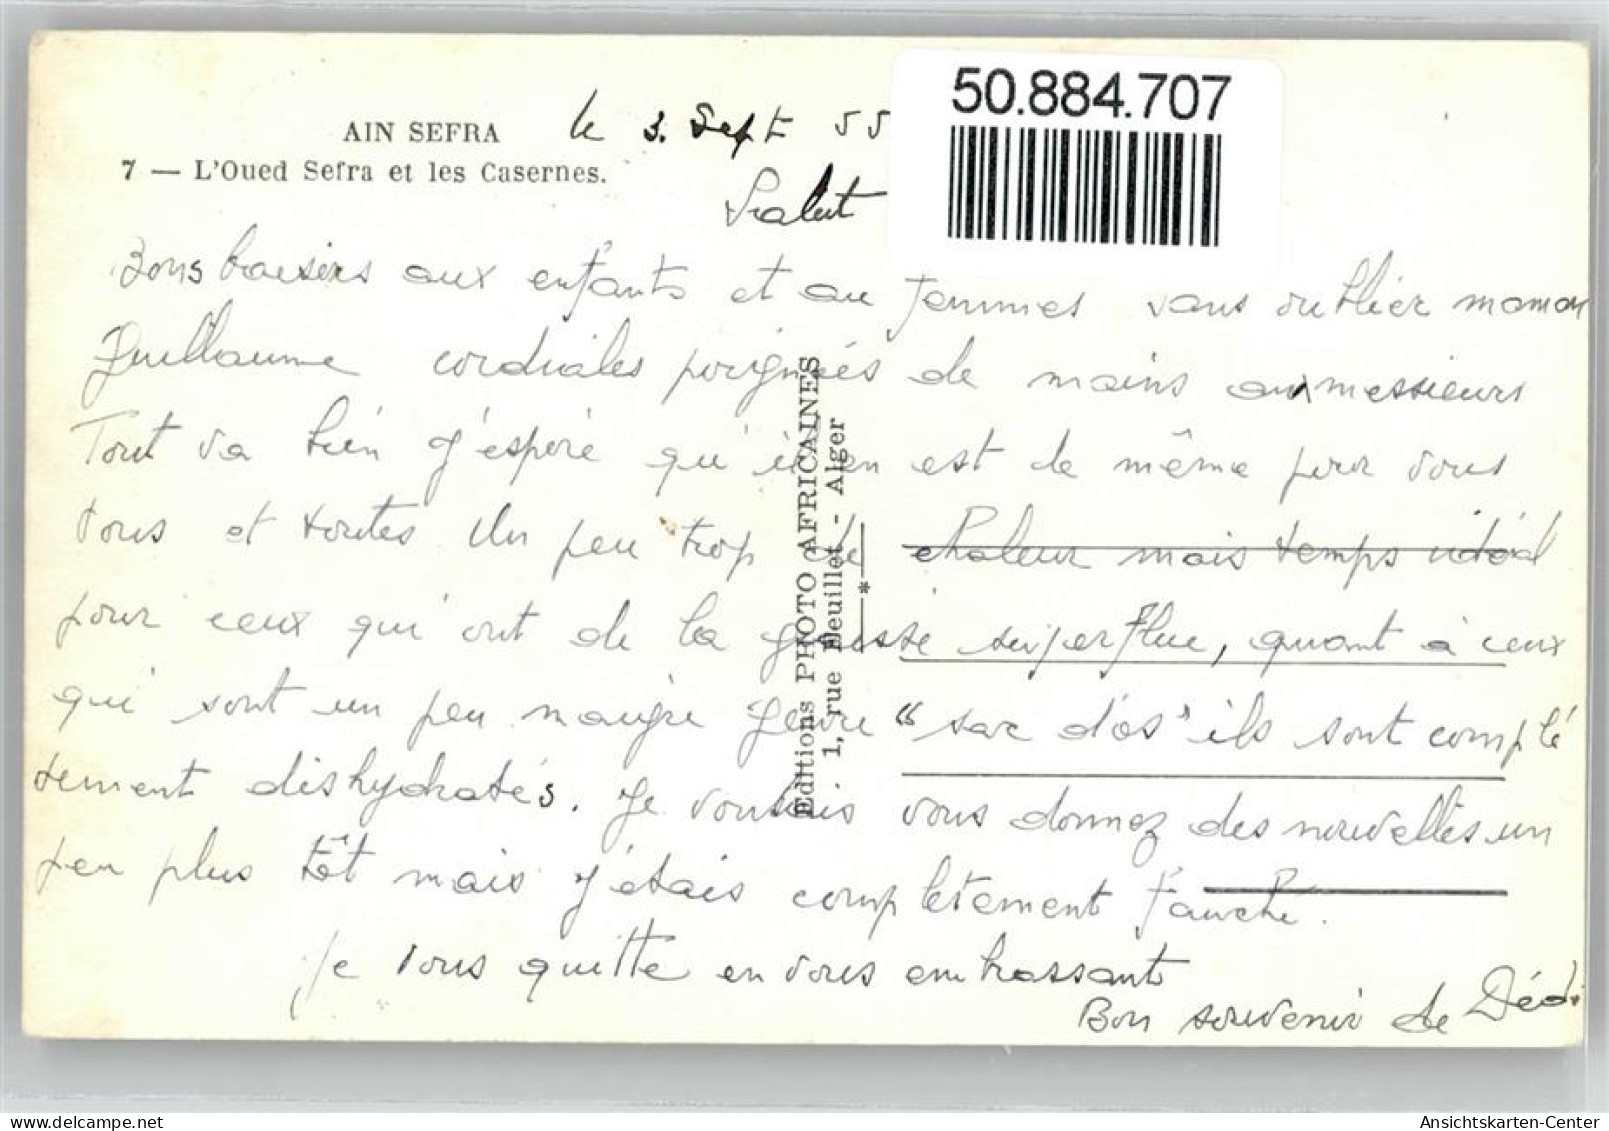 50.884.707
AIN SEFRA
le 3. Sept 55
7 — L'Oued Sefra et les Casernes.
Salut
Bons baisers aux enfants et au femmes sans oublier maman
Guillaume cordiales poignées de mains aux messieurs
Tout va bien j'espère qu'il en est de même pour vous
tous et toutes Un peu trop de chaleur mais temps idéal
pour ceux qui ont de la graisse superflue, quant à ceux
qui sont un peu maigre genre "sac d'os" ils sont complé
tement déshydratés. Je voulais vous donnez des nouvelles un
peu plus tôt mais j'étais complètement fauché.
Je vous quitte en vous embrassant
Bon souvenir de Dédé
Editions PHOTO AFRICAINES
1, rue Feuillet - Alger
Ansichtskarten-Center